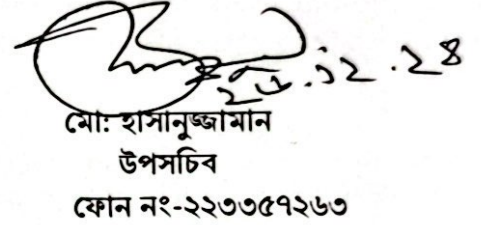 মো: হাসানুজ্জামান
উপসচিব
ফোন নং-২২৩৩৫৭২৬৩